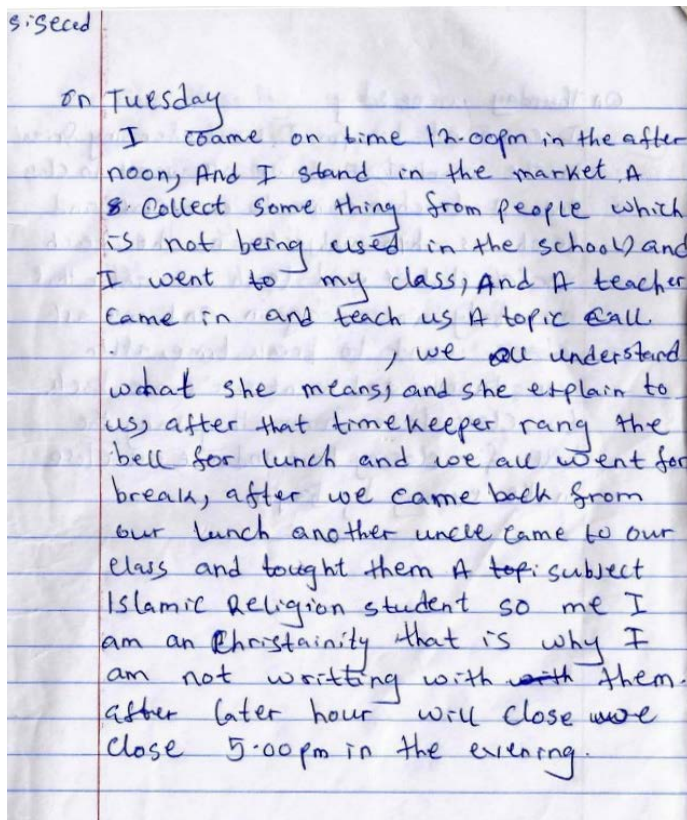 s.seced
on Tuesday
I came on time 12.00pm in the after
noon, And I stand in the market A
& Collect some thing from people which
is not being used in the school) and
I went to my class, And A teacher
came in and teach us A topic call.
, we all understand
what she means, and she explain to
us, after that timekeeper rang the
bell for lunch and we all went for
break, after we came back from
our lunch another uncle came to our
class and tought them A topi subject
Islamic Religion student so me I
am an Christainity that is why I
am not writting with with them.
after later hour will close we
close 5.00pm in the evening.